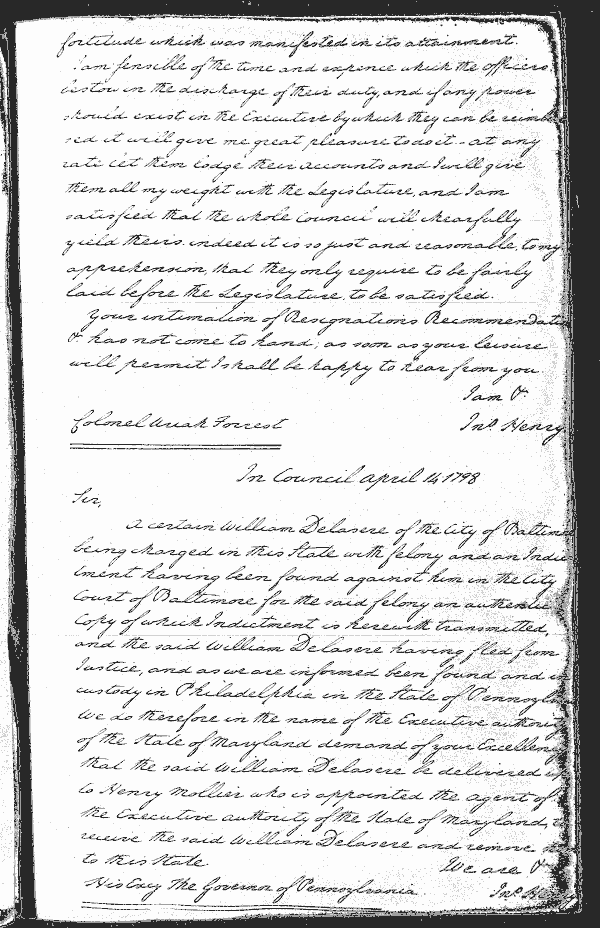 fortitude which was manifested in its attainment.
I am sensible of the time and expence which the officers
bestow in the discharge of their duty, and if any power
should exist in the Executive by which they can be reimbu
sed it will give me great pleasure to do it - at any
rate let them lodge their accounts and I will give
them all my weight with the Legislature, and I am
satisfied that the whole Council will chearfully
yield theirs. indeed it is so just and reasonable, to my
apprehension, that they only require to be fairly
laid before the Legislature, to be satisfied.
Your intimation of Resignations Recommendation
&c has not come to hand; as soon as your leisure
will permit I shall be happy to hear from you
I am &c
Colonel Uriah Forrest
Jno. Henry
In Council April 14 1798
Sir,
A certain William Delasere of the City of Baltimore
being charged in this State with felony and an Indic
tment having been found against him in the City
Court of Baltimore for the said felony an authentic
Copy of which Indictment is herewith transmitted,
and the said William Delasere having fled from
Justice, and as we are informed been found and in
custody in Philadelphia in the State of Pennsylva
We do therefore in the name of the Executive authority
of the State of Maryland demand of your Excellency
that the said William Delasere be delivered up
to Henry Mollier who is appointed the agent of
the Executive authority of the State of Maryland, to
receive the said William Delasere and remove
to this State
We are &c
His Excy The Governor of Pennsylvania
Jno. H